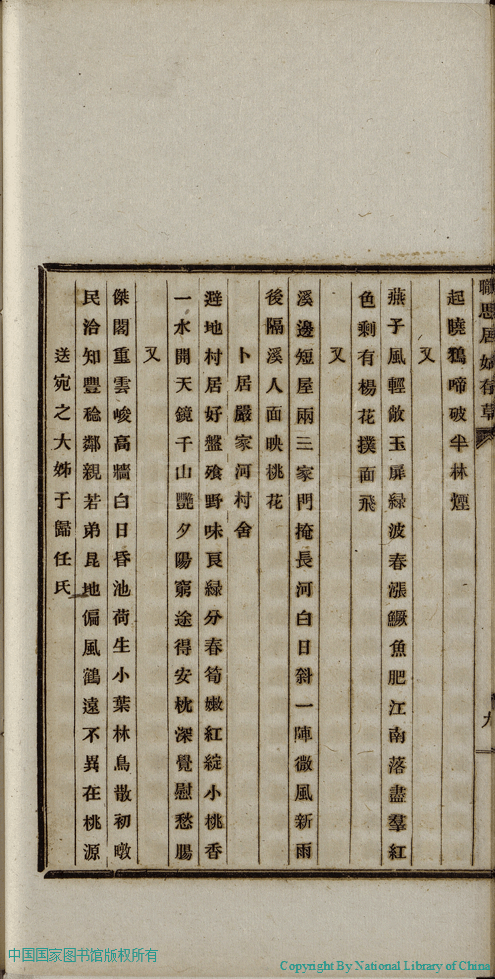 職思居存草
九
起曉鵶啼破半林煙
又
燕子風輕敞玉扉綠波春漲鱖魚肥江南落盡羣紅
色剩有楊花撲面飛
又
溪邊短屋兩三家門掩長河白日斜一陣微風新雨
後隔溪人面映桃花
卜居嚴家河村舍
避地村居好盤飧野味良綠分春筍嫩紅綻小桃香
一水開天鏡千山豔夕陽窮途得安枕深覺慰愁腸
又
傑閣重雲峻高牆白日昏池荷生小葉林鳥散初暾
民治知豐稔鄰親若弟昆地偏風鶴遠不異在桃源
送宛之大姊于歸任氏
中国国家图书馆版权所有
Copyright By National Library of China